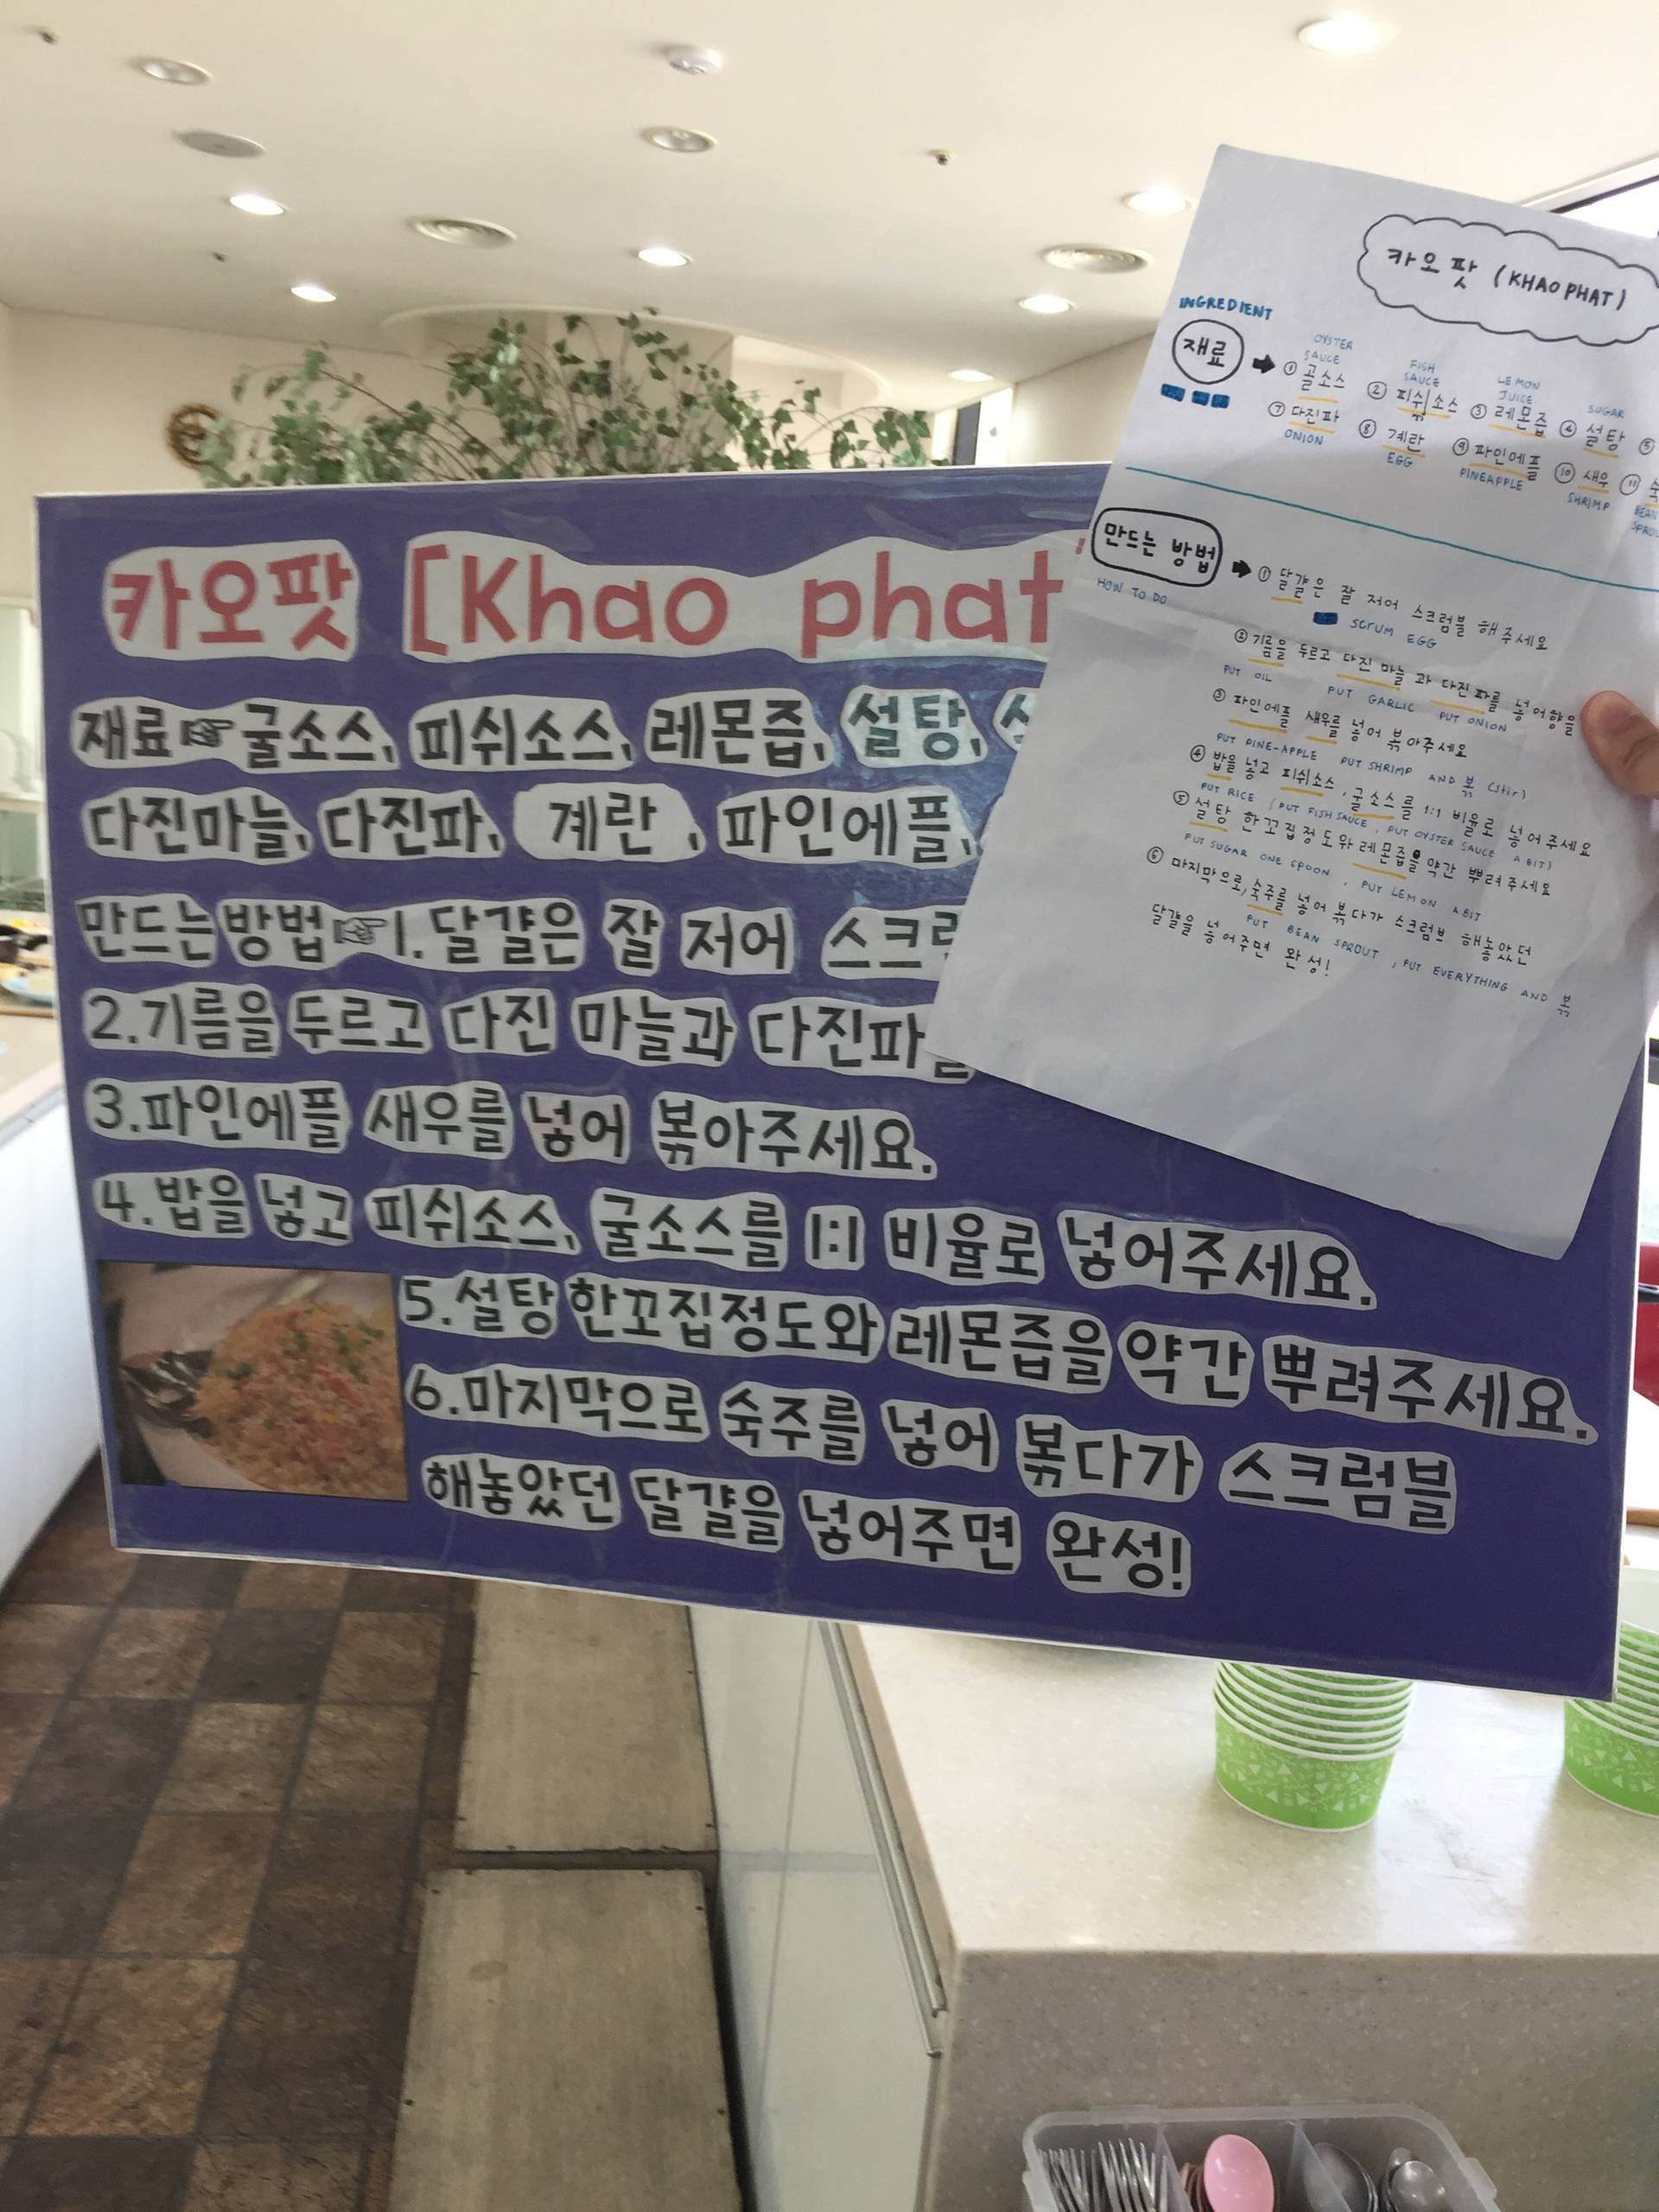 카오팟 [Khao phat
재료☞굴소스, 피쉬소스, 레몬즙, 설탕,
다진마늘, 다진파, 계란, 파인에플,
만드는방법☞1.달걀은 잘 저어 스크
2.기름을 두르고 다진 마늘과 다진파
3.파인에플 새우를 넣어 볶아주세요.
4.밥을 넣고 피쉬소스, 굴소스를 1:1 비율로 넣어주세요.
5.설탕 한꼬집정도와 레몬즙을 약간 뿌려주세요.
6.마지막으로 숙주를 넣어 볶다가 스크럼블
해놓았던 달걀을 넣어주면 완성!
카오팟 (KHAO PHAT)
INGREDIENT
OYSTER SAUCE FISH SAUCE LEMON JUICE SUGAR
재료 ➡ ① 굴소스 ② 피쉬소스 ③ 레몬즙 ④ 설탕 ⑤
⑦ 다진파 ⑧ 계란 ⑨ 파인에플 ⑩ 새우 ⑪
ONION EGG PINEAPPLE SHRIMP BEAN
만드는 방법 ➡ ① 달걀은 잘 저어 스크럼블 해주세요
HOW TO DO SCRUM EGG
② 기름을 두르고 다진 마늘과 다진파를 넣어향을
PUT OIL PUT GARLIC PUT ONION
③ 파인에플 새우를 넣어 볶아주세요
PUT PINE-APPLE PUT SHRIMP AND 볶 (stir)
④ 밥을 넣고 피쉬소스, 굴소스를 1:1 비율로 넣어주세요
PUT RICE (PUT FISH SAUCE, PUT OYSTER SAUCE A BIT)
⑤ 설탕 한꼬집정도와 레몬즙을 약간 뿌려주세요
PUT SUGAR ONE SPOON, PUT LEMON A BIT
⑥ 마지막으로, 숙주를 넣어 볶다가 스크럼브 해놓았던
PUT BEAN SPROUT, PUT EVERYTHING AND 볶
달걀을 넣어주면 완성!